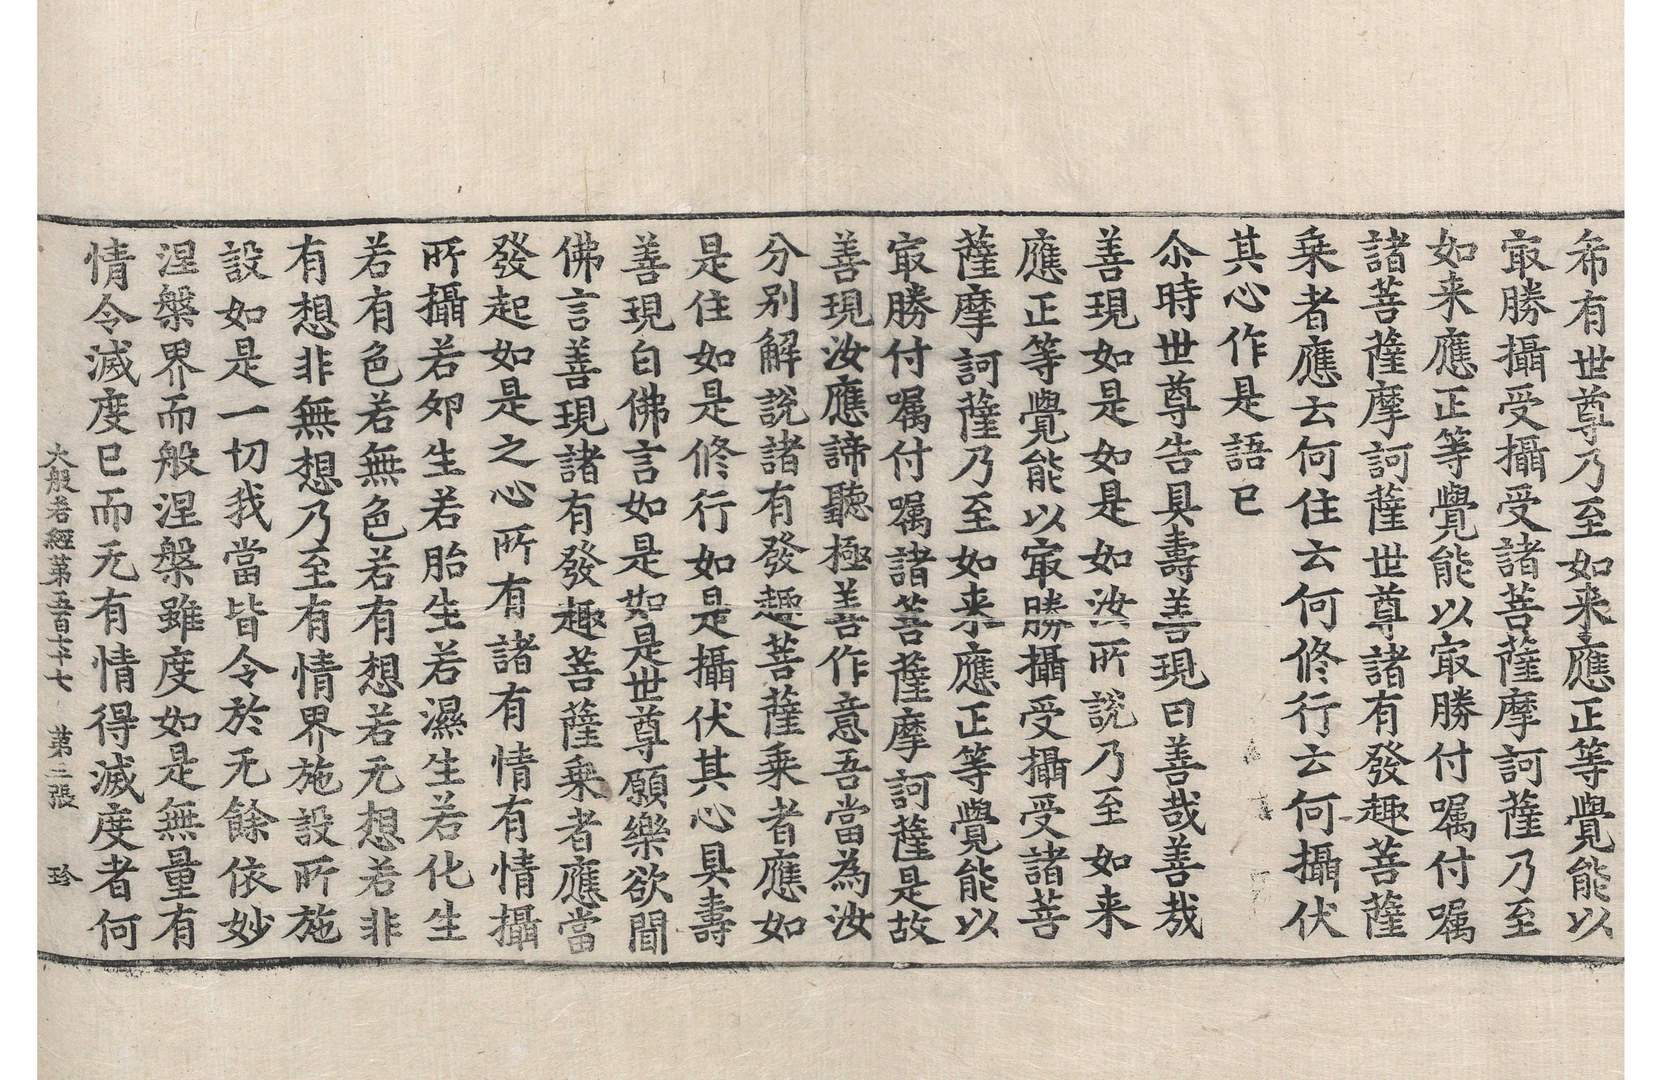 希有世尊乃至如来應正等覺能以
㝡勝攝受攝受諸菩薩摩訶薩乃至
如来應正等覺能以㝡勝付嘱付嘱
諸菩薩摩訶薩世尊諸有發趣菩薩
乗者應云何住云何修行云何攝伏
其心作是語已
尒時世尊告具壽善現曰善哉善哉
善現如是如是如汝所說乃至如来
應正等覺能以㝡勝攝受攝受諸菩
薩摩訶薩乃至如来應正等覺能以
㝡勝付嘱付嘱諸菩薩摩訶薩是故
善現汝應諦聽極善作意吾當為汝
分別解說諸有發趣菩薩乗者應如
是住如是修行如是攝伏其心具壽
善現白佛言如是如是世尊願樂欲聞
佛言善現諸有發趣菩薩乗者應當
發起如是之心所有諸有情有情攝
所攝若卵生若胎生若濕生若化生
若有色若無色若有想若无想若非
有想非無想乃至有情界施設所施
設如是一切我當皆令於无餘依妙
涅槃界而般涅槃雖度如是無量有
情令滅度已而无有情得滅度者何
大般若經第五百七十七 第二張 珍